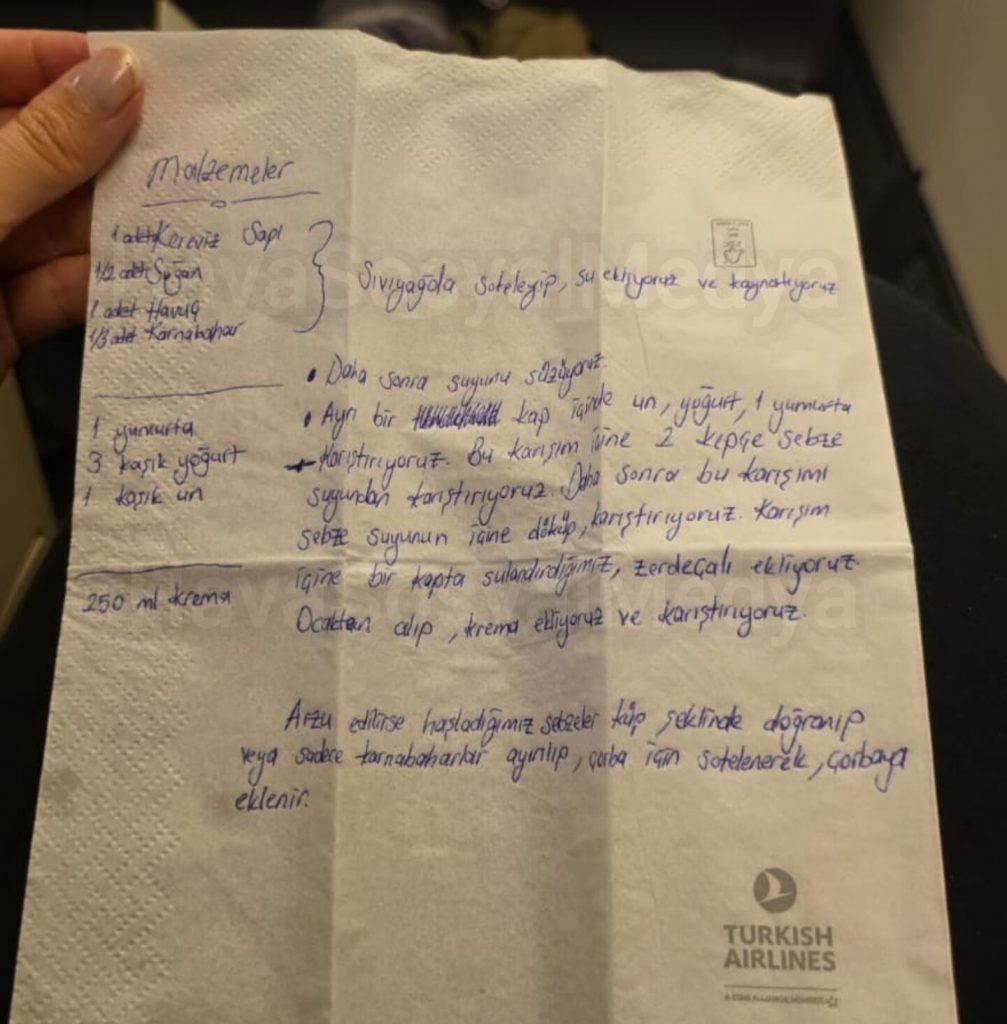 Malzemeler
1 adet Kereviz Sapı
1/2 adet Soğan
1 adet Havuç
1/3 adet Karnabahar
Sıvıyağda soteleyip, su ekliyoruz ve kaynatıyoruz
1 yumurta
3 kaşık yoğurt
1 kaşık un
250 ml krema
• Daha sonra suyunu süzüyoruz.
• Ayrı bir kap içinde un, yoğurt, 1 yumurta
karıştırıyoruz. Bu karışım içine 2 kepçe sebze
suyundan karıştırıyoruz. Daha sonra bu karışımı
sebze suyunun içine döküp, karıştırıyoruz. Karışım
içine bir kapta sulandırdığımız, zerdeçalı ekliyoruz.
Ocaktan alıp, krema ekliyoruz ve karıştırıyoruz.
Arzu edilirse haşladığımız sebzeler küp şeklinde doğranıp
veya sadece karnabaharlar ayırılıp, çorba için sotelenerek, çorbaya
eklenir.
TURKISH
AIRLINES
A STAR ALLIANCE MEMBER
HavaSosyalMedya
HavaSosyalMedya